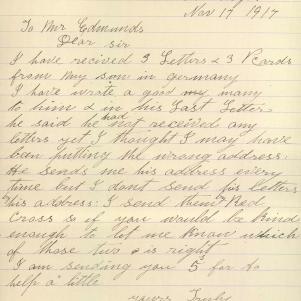 Nov 17 1917
To Mr Edmunds
Dear sir
I have recived 3 Letters & 3 Pcards
from my son in germany
I have wrote a good many
to him & in his Last Letter
he said he had not received any
letters yet I thought I may have
been putting the wrong address.
He sends me his address every
time but I dont send for letters
this address. I send them Red
Cross so if you would be kind
enough to let me know which
of those two is right
I am sending you 5 for to
help a little
yours Truly